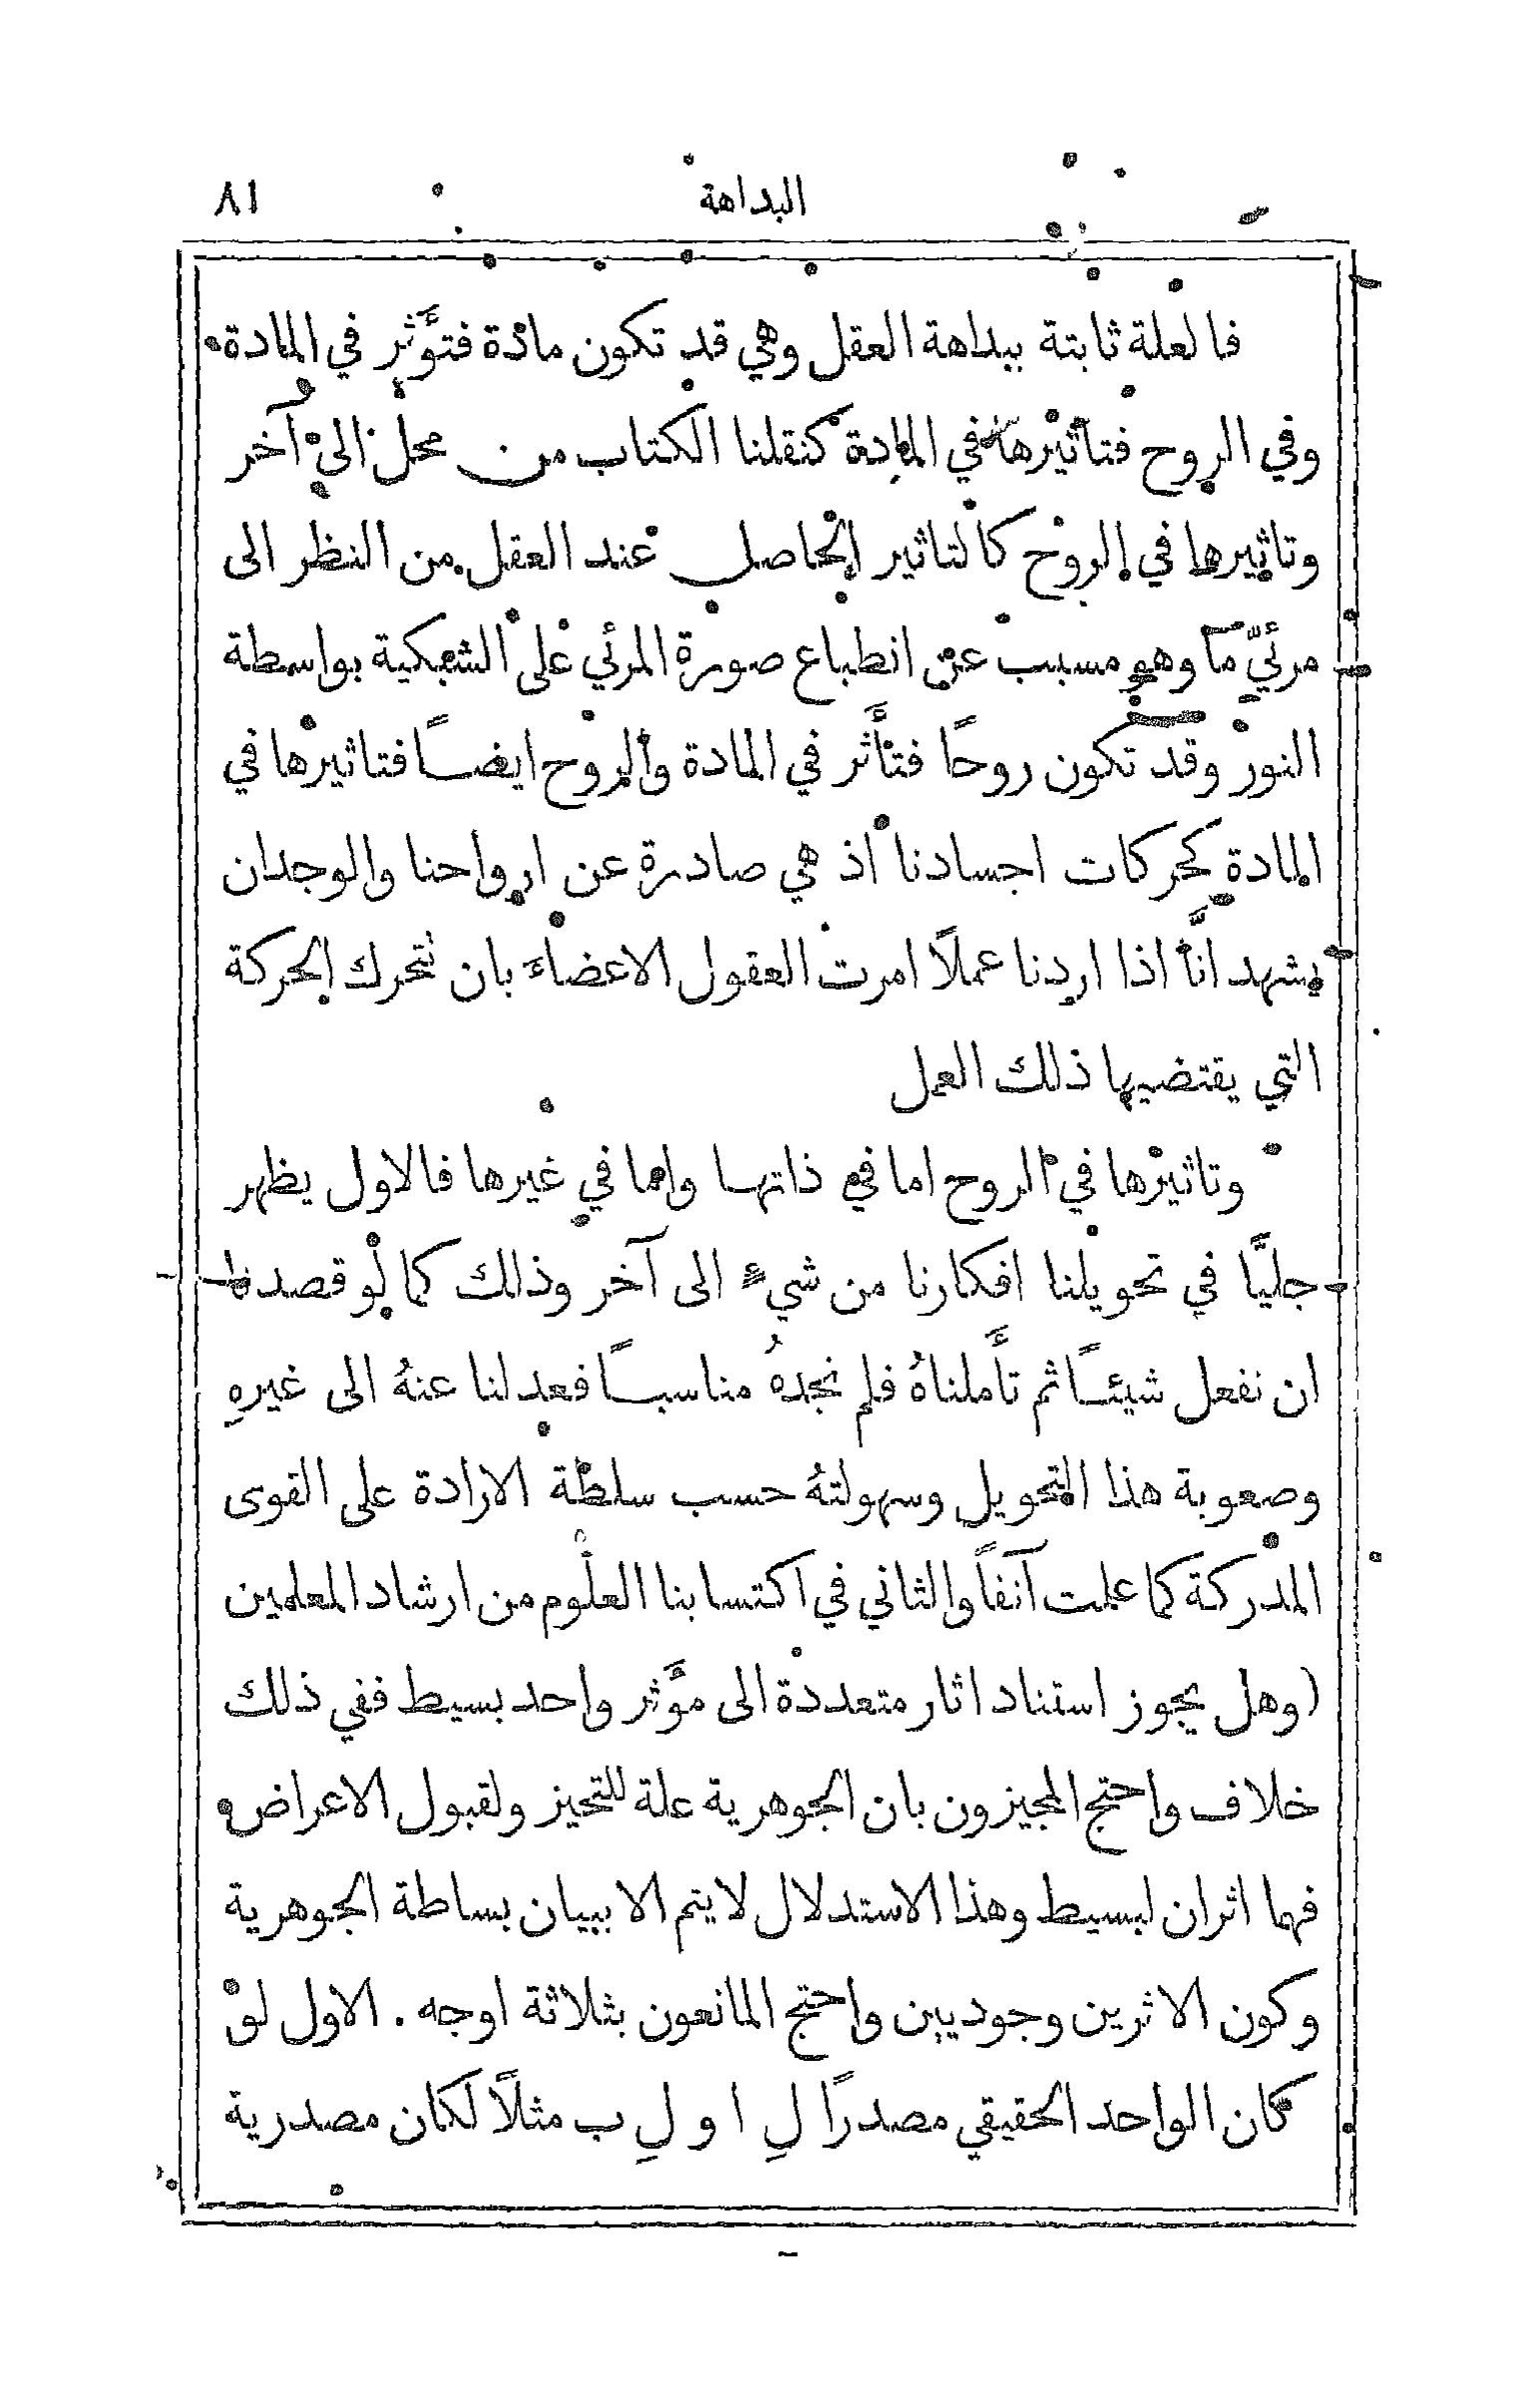 البداهة ٨١
فالعلة ثابتة ببداهة العقل وهي قد تكون مادة فتؤَثر في المادة
وفي الروح فتأثيرها في المادة كنقلنا الكتاب من محل الى آخر
وتاثيرها في الروح كالتاثير الحاصل عند العقل من النظر الى
مرئيٍّ مَّا وهو مسبب عن انطباع صورة المرئي على الشبكية بواسطة
النور وقد تكون روحًا فتأَثر في المادة والروح ايضًا فتاثيرها في
المادة كحركات اجسادنا اذ هي صادرة عن ارواحنا والوجدان
يشهد انَّا اذا اردنا عملًا امرت العقول الاعضاءَ بان تتحرك الحركة
التي يقتضيها ذلك العمل
وتاثيرها في الروح اما في ذاتها واما في غيرها فالاول يظهر
جليًّا في تحويلنا افكارنا من شيءٍ الى آخر وذلك كما لو قصدنا
ان نفعل شيئًا ثم تأَملناهُ فلم نجدهُ مناسبًا فعدلنا عنهُ الى غيرهِ
وصعوبة هذا التحويل وسهولتهُ حسب سلطة الارادة على القوى
المدركة كما علمت آنفًا والثاني في اكتسابنا العلوم من ارشاد المعلمين
(وهل يجوز استناد اثار متعددة الى مؤَثر واحد بسيط ففي ذلك
خلاف واحتج المجيزون بان الجوهرية علة للتحيز ولقبول الاعراض
فهما اثران لبسيط وهذا الاستدلال لا يتم الا ببيان بساطة الجوهرية
وكون الاثرين وجوديين واحتج المانعون بثلاثة اوجه . الاول لو
كان الواحد الحقيقي مصدرًا لِ ا و لِ ب مثلًا لكان مصدرية